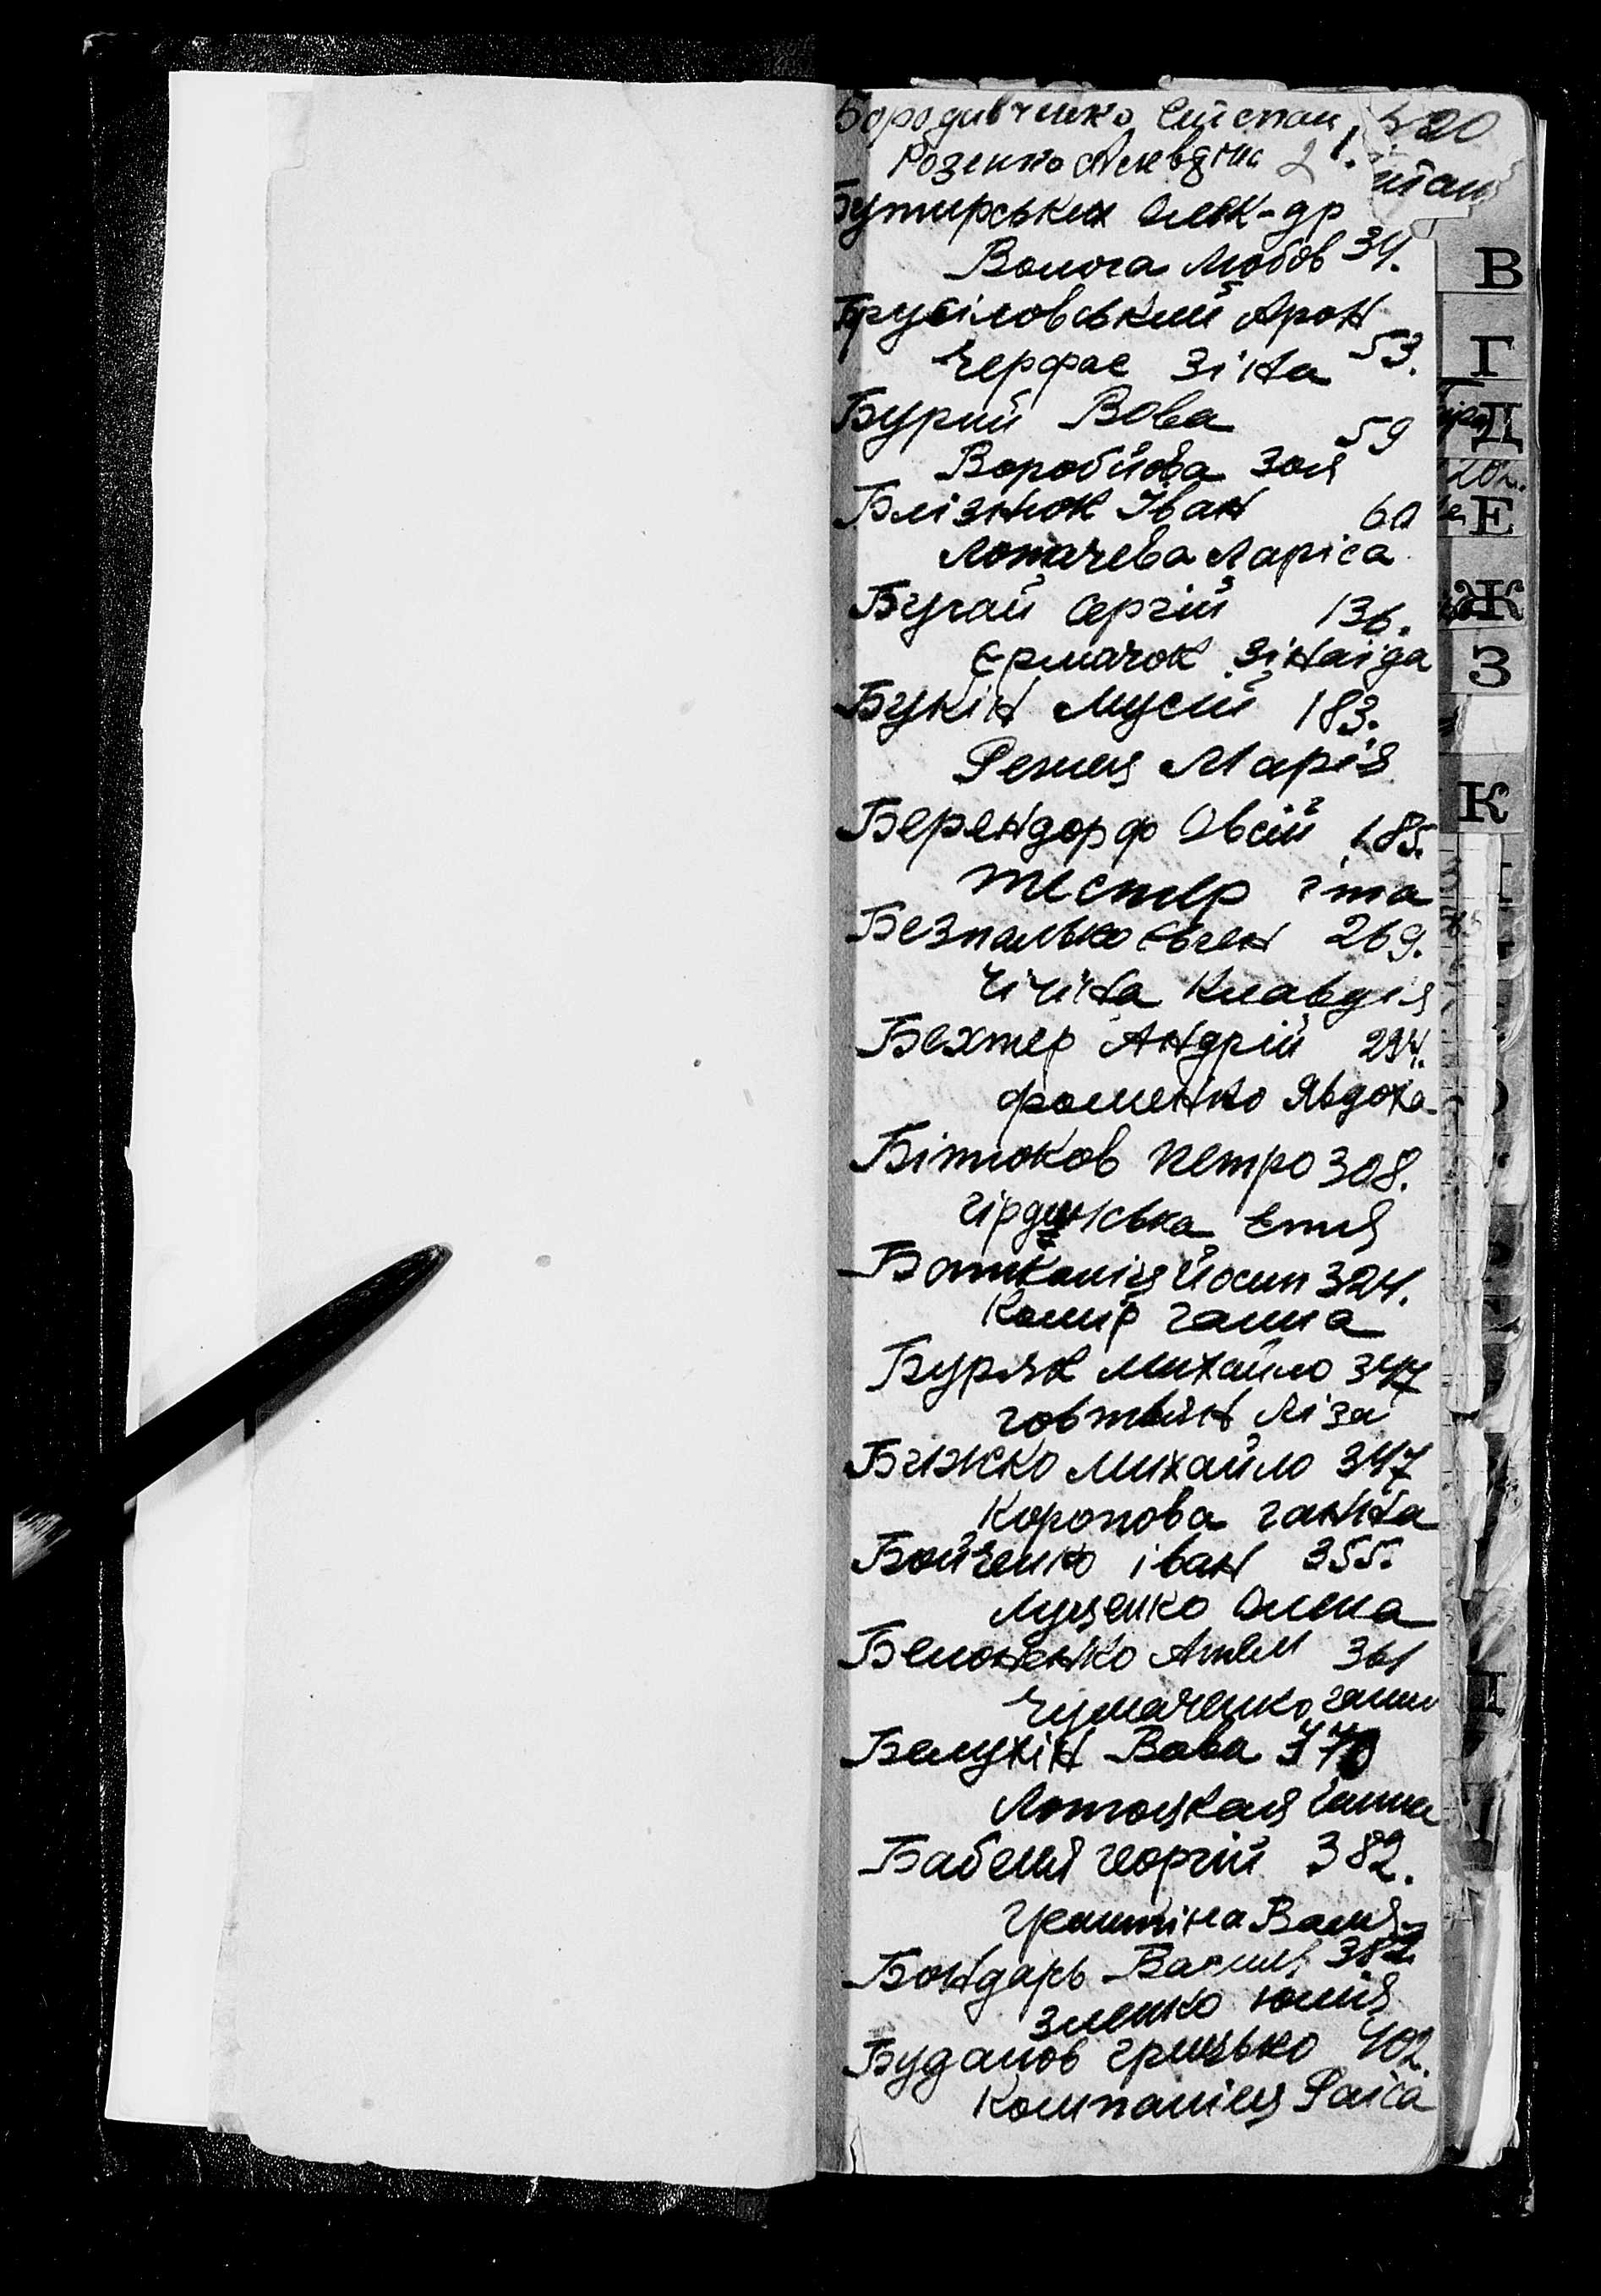 Бородивченко Степан
Розенко 21.
Бутирських Олек-др
Волога Любов 34.
Брусіловський Арон
Черфас Зіна 53.
Бурий Вова 59
Воробйова Зоя
Блізнюк Іван 60
Лопачева Ларіса
Бугай Сергій 136.
Єрмачок Зінаіда
Букін Мусій 183.
Репка Марія
Берендорф Овсій 185.
Тестер Гта
Безпалько Євген 269.
Чічіна Клавдія
Бехтер Андрій 294.
Фоменко Явдоха
Бітюков Петро 308.
Гірдинська Етля
Йосип 324.
Комір Ганна
Буряк Михайло 347
Говтвян Ліза
Бижко Михайло 347
Коропова Ганна
Бойченко Іван 355.
Луценко Олена
Белоненко Артем 361
Чумаченко Ганна
Белухін Вова 370
Лотоцкая Ганна
Бабеня Георгій 382.
Грешткіна Валя
Бондарь Василь 382
Зленко Юлія
Буданов Грицько 402.
Компаніец Раіса
В
Г
Д
Е
Ж
З
К